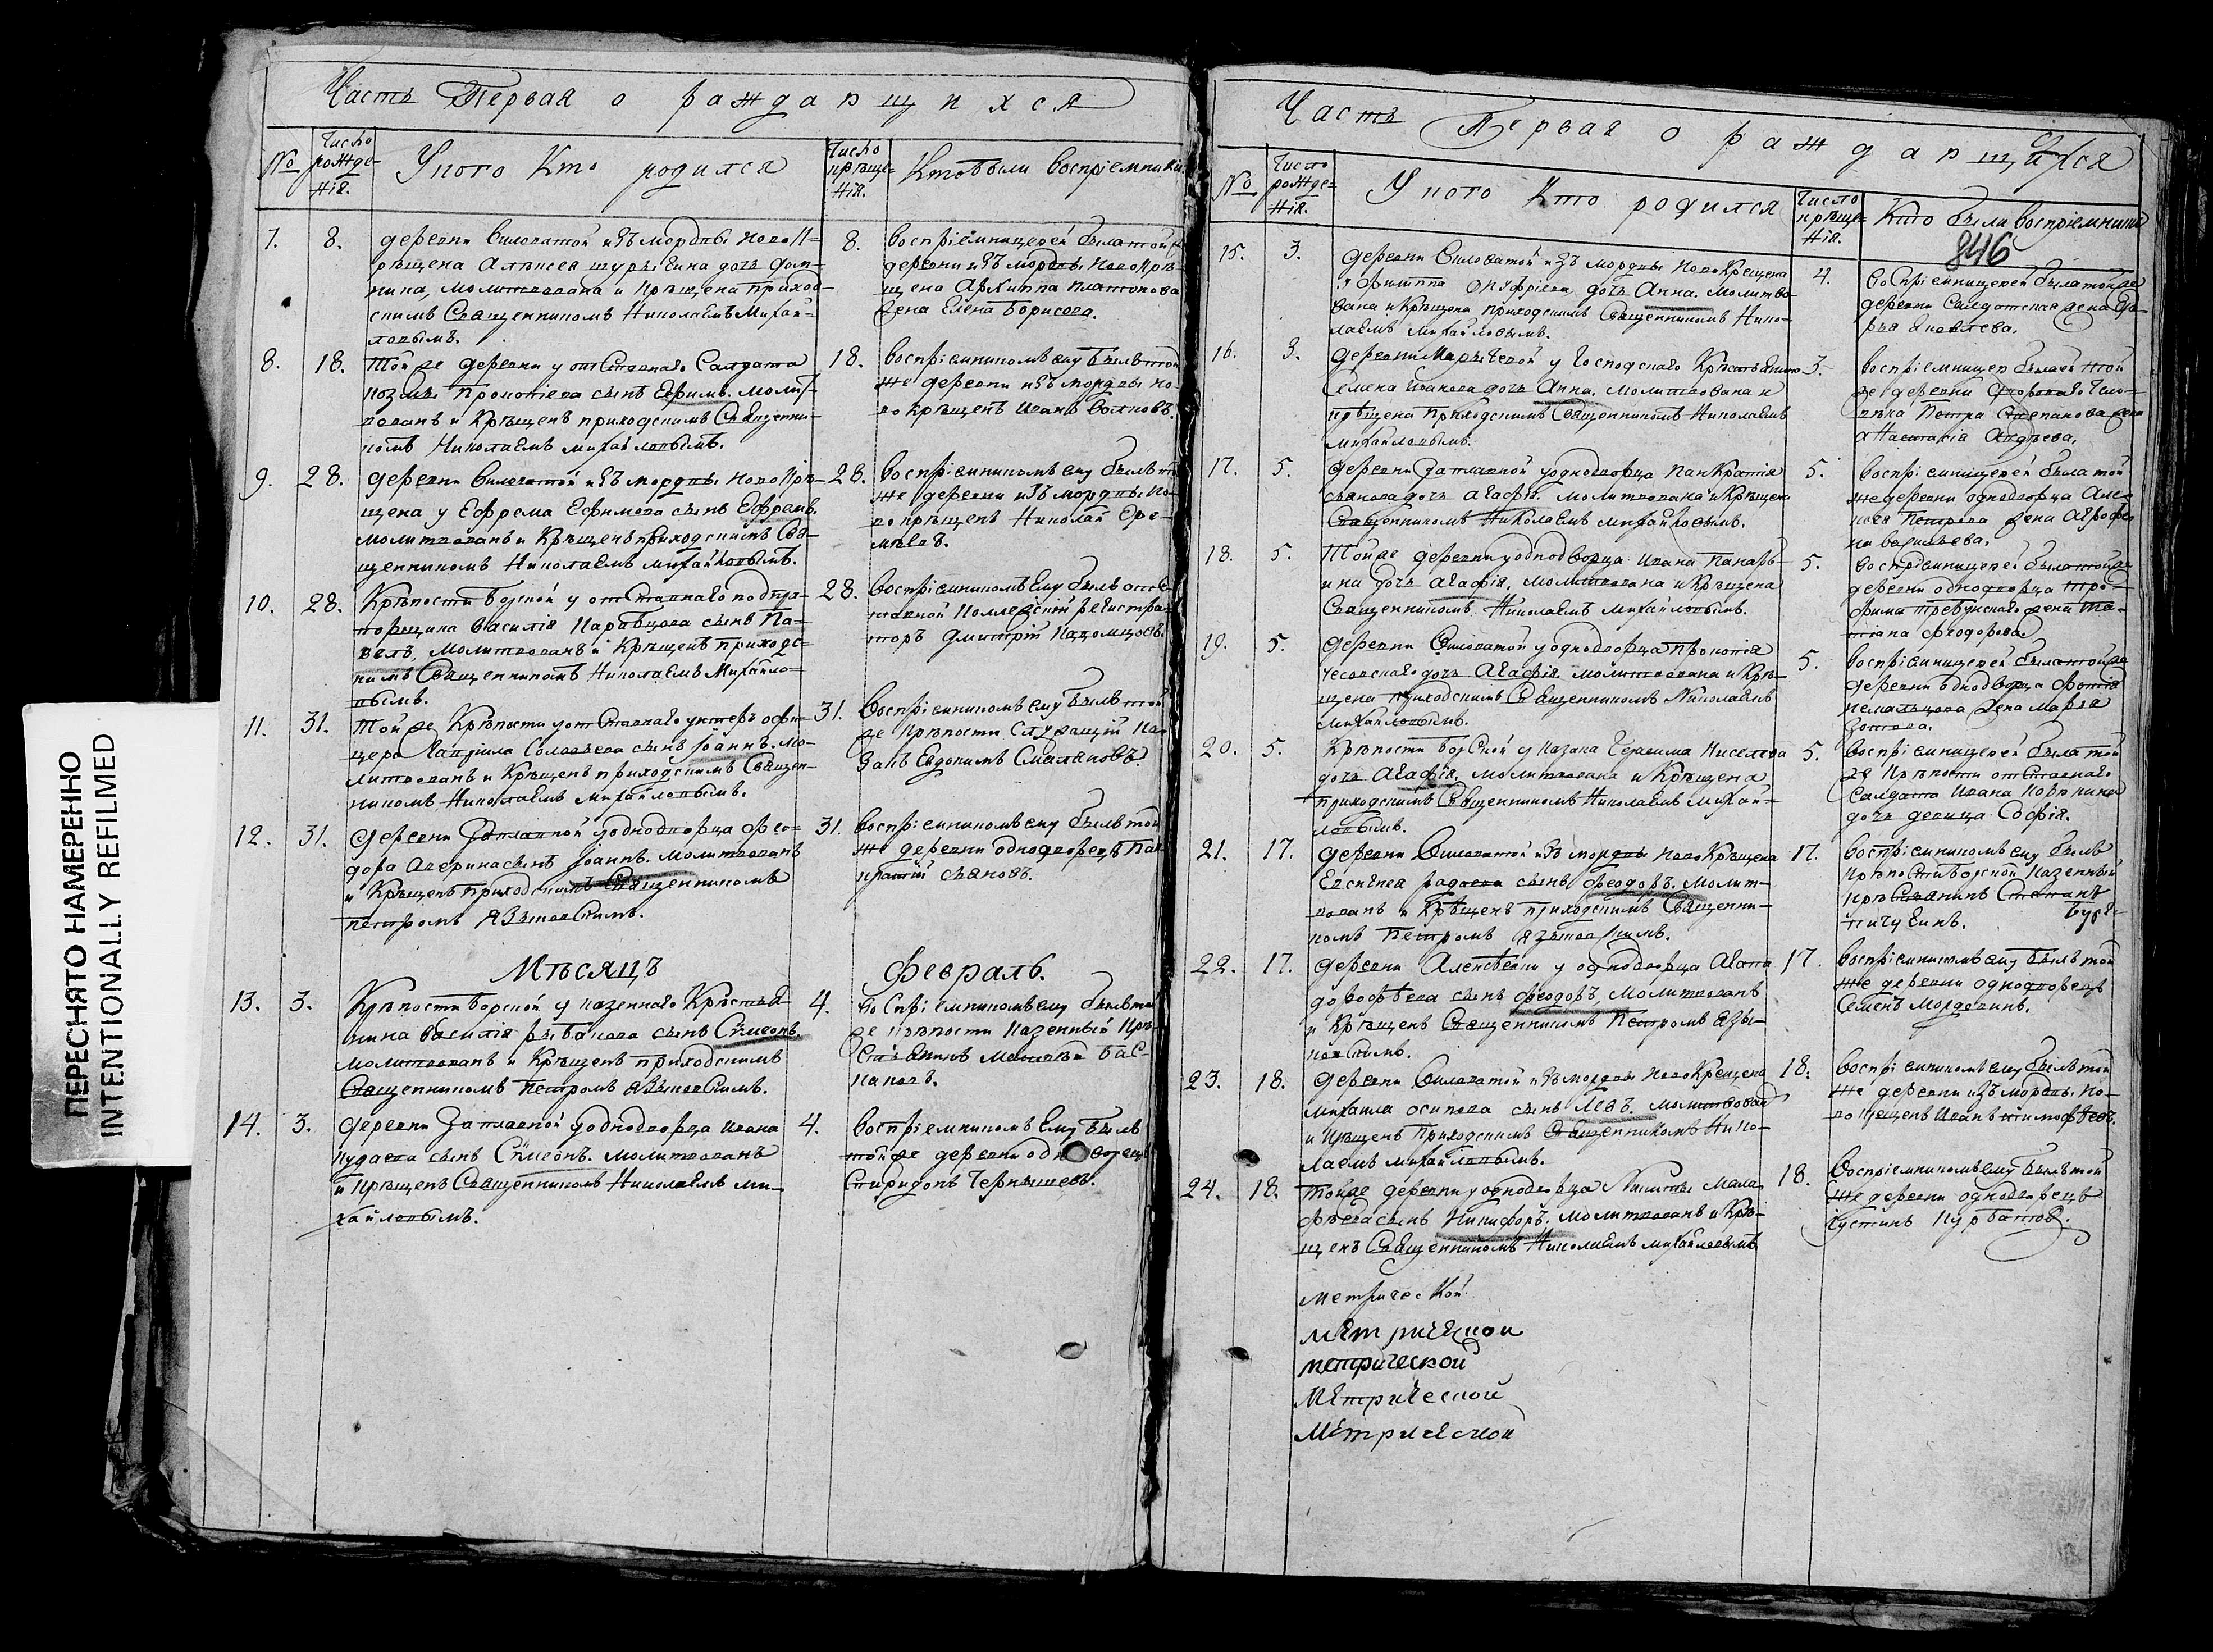 ПЕРЕСНЯТО НАМЕРЕННО
INTENTIONALLY REFILMED
Часть Первая о раждающихся
№
Число рожде-
нія.
У кого Кто родился
Число
крѣще-
нія.
Кто были воспріемники
7.
8.
деревни Силоватой изъ мордвы новок-
рѣщена Алѣксея дочь Дом-
ника, молитвована и крѣщена приход-
скимъ Священникомъ Николаемъ Михай-
ловымъ.
8.
воспріемницей была той
деревни изъ мордвы новокрѣ-
щена Архиппа Платонова
жена Елена Борисова.
8.
18.
Той же деревни у отставнаго Салдата
козмы Прокопіева сынъ Ефимъ. молит-
вованъ и Крѣщенъ приходскимъ Священни-
комъ Николаемъ михайловымъ.
18.
воспріемникомъ ему былъ той
же деревни изъ мордвы но-
во крѣщенъ Иванъ
9.
28.
деревни Силоватой изъ мордвы новокрѣ-
щена у Ефрема Ефимова сынъ Ефремъ.
молитвованъ и Крѣщенъ приходскимъ Свя-
щенникомъ Николаемъ михайловымъ.
28.
воспріемникомъ ему былъ той
же деревни изъ мордвы но-
во крѣщенъ Николай Ере-
мѣевъ.
10.
28.
Крѣпости Борской у отставнаго подпра-
порщика Василія сынъ Па-
велъ, молитвованъ и Крѣщенъ приходс-
кимъ Священникомъ Николаемъ Михайло-
вымъ.
28.
воспріемникомъ Ему былъ отс-
тавной регистра-
торъ Дмитрій
11.
31.
Той же Крѣпости у отставнаго унтеръ офи-
цера Гаврила Соловьева сынъ Іоаннъ. мо-
литвованъ и Крѣщенъ приходскимъ Священ-
никомъ Николаемъ михайловымъ.
31.
воспріемникомъ ему былъ той
же крѣпости Служащій ка-
закъ Евдокимъ
12.
31.
деревни Заплавной у однодворца Фео-
дора Аверина сынъ Іоаннъ. молитвованъ
и Крѣщенъ приходскимъ Священникомъ
петромъ Языковскимъ.
31.
воспріемникомъ ему былъ той
же деревни однодворецъ Пан-
кратій
Мѣсяцъ Февраль.
13.
3.
Крѣпости Борской у казеннаго Крѣстья-
нина Василія сынъ Симеонъ
молитвованъ и Крѣщенъ приходскимъ
Священникомъ петромъ Языковскимъ.
4.
воспріемникомъ ему былъ той
же крѣпости казенный крѣ-
стьянинъ
14.
3.
деревни Заплавной у однодворца Ивана
сынъ Симеонъ. молитвованъ
и крѣщенъ Священникомъ Николаемъ ми-
хайловымъ.
4.
воспріемникомъ Ему былъ
той же деревни однодворецъ
Спиридонъ Чернышевъ.
Часть Первая о раждающихся
№
Число
рожде-
нія.
У кого Кто родился
Число
крѣще-
нія.
Кто были воспріемники
846
15.
3.
деревни Силоватой изъ мордвы новокрещена
у Филиппа Онуфріева дочь Анна. молитво-
вана и Крѣщена приходскимъ Священникомъ Нико-
лаемъ михайловымъ.
4.
воспріемницей была той же
деревни Салдатская жена Да-
рья Яковлева.
16.
3.
деревни у Господскаго Крѣстьянина
Семена Иванова дочь Анна. молитвована и
крѣщена приходскимъ Священникомъ Николаемъ
михайловымъ.
3.
воспріемницею была той
же деревни дворового чело-
вѣка Петра Степанова жена
Анастасія Андрѣева.
17.
5.
деревни Заплавной у однодворца Панкратія
дочь Агафія. молитвована и Крѣщена
Священникомъ Николаемъ михайловымъ.
5.
воспріемницей была той
же деревни однодворца Алек-
сея Петрова жена
Васильева.
18.
5.
Той же деревни у однодворца Ивана
дочь Агафія, молитвована и Крѣщена
Священникомъ Николаемъ михайловымъ.
5.
воспріемницей была той же
деревни однодворца Тро-
фима жена Та-
тіана Феодорова.
19.
5.
деревни Силоватой у однодворца Прокопія
дочь Агафія. молитвована и Крѣ-
щена приходскимъ Священникомъ Николаемъ
михайловымъ.
5.
воспріемницей была той же
деревни однодворца Фотія
жена Марья
20.
5.
Крѣпости Борской у казака Герасима Киселева
дочь Агафія. молитвована и Крѣщена
приходскимъ Священникомъ Николаемъ михай-
ловымъ.
5.
воспріемницей была той
же Крѣпости отставнаго
Салдата Ивана
дочь девица Софія.
21.
17.
деревни Силоватой изъ мордвы новокрѣщена
Евсигнея сынъ Феодоръ. молит-
вованъ и Крѣщенъ приходскимъ Священни-
комъ Петромъ Языковскимъ.
17.
воспріемникомъ ему былъ
крѣпости Борской казенный
крѣстьянинъ Степанъ
22.
17.
деревни Алексѣевки у однодворца Агапа
дорофѣева сынъ Феодоръ, молитвованъ
и Крѣщенъ Священникомъ Петромъ Язы-
ковскимъ.
17.
воспріемникомъ ему былъ той
же деревни однодворецъ
Семенъ Мордовинъ.
23.
18.
деревни Силоватой изъ мордвы новокрещена
михаила осипова сынъ Левъ. молитвован
и крѣщенъ приходскимъ Священникомъ Нико-
лаемъ михайловымъ.
18.
воспріемникомъ ему былъ той
же деревни изъ мордвы но-
во крещенъ Иванъ тимофѣевъ.
24.
18.
той же деревни у однодворца Никиты Мала-
фѣева сынъ Никифоръ. молитвованъ и Крѣ-
щенъ Священникомъ Николаемъ михайловымъ
18.
воспріемникомъ ему былъ той
же деревни однодворецъ
Густинъ Курбатовъ.
метрической
метрической
метрической
метрической
метрической